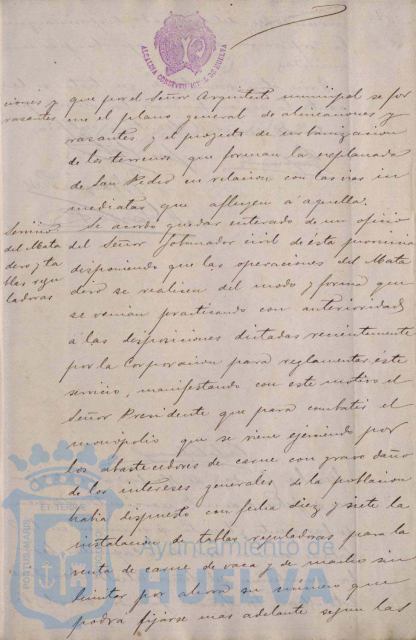 ALCALDIA CONSTITUCIONAL DE HUELVA
ciones y
rasantes
que por el Señor Arquitecto municipal se for
me el plano general de alineaciones y
rasantes y el proyecto de urbanizacion
de los terrenos que forman la explanada
de San Pedro en relacion con las vias in
mediatas que afluyen a aquella.
Servicio
del Mata
dero y ta
blas regu
ladoras
Se acordo quedar enterado de un oficio
del Señor Gobernador civil de esta provincia
disponiendo que las operaciones del Mata
dero se realicen del modo y forma que
se venian practicando con anterioridad
a las disposiciones dictadas recientemente
por la Corporacion para reglamentar este
servicio, manifestando con este motivo el
Señor Presidente que para combatir el
monopolio que se viene ejerciendo por
los abastecedores de carne con grave daño
de los intereses generales de la poblacion
habia dispuesto con fecha diez y siete la
instalacion de tablas reguladoras para la
venta de carne de vaca y de macho sin
limitar por ahora su numero que
podra fijarse mas adelante segun las
Ayuntamiento de
HUELVA